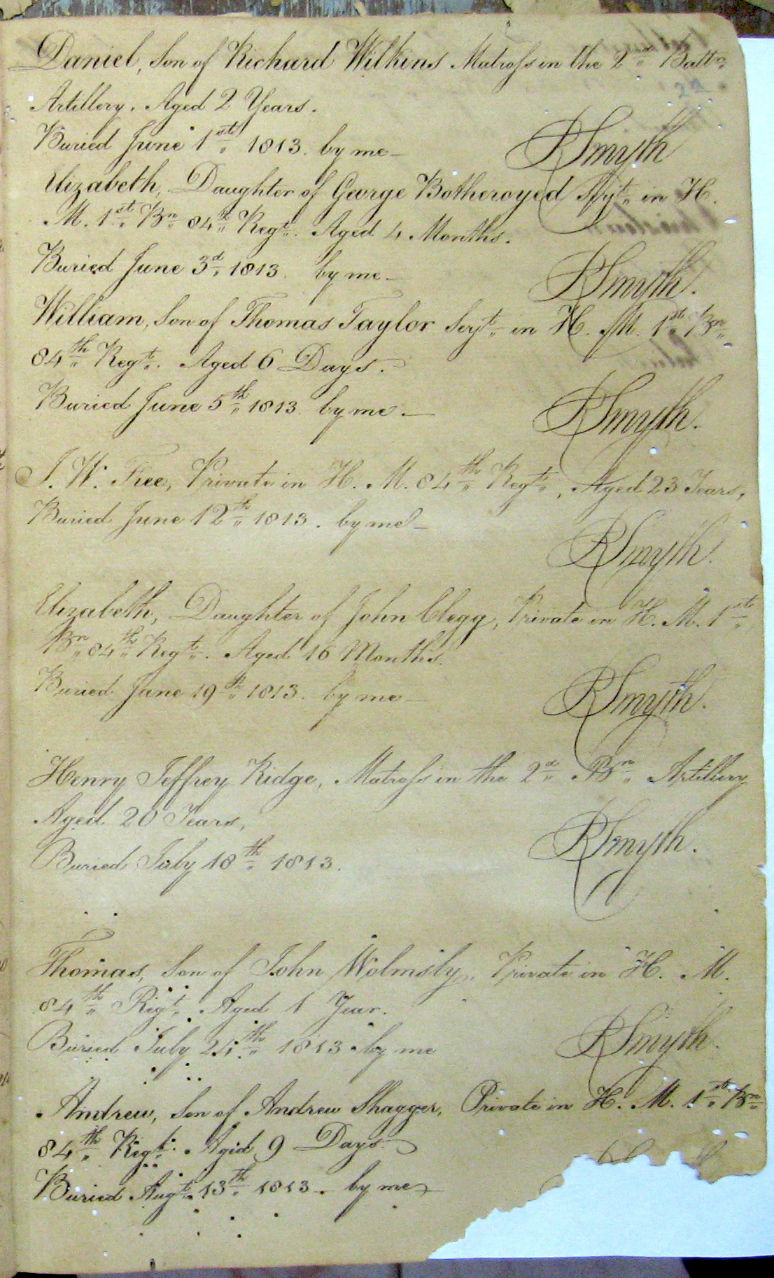 Daniel, Son of Richard Wilkins Matross in the 2nd Baltn
Artillery. Aged 2 Years.
Buried June 1st 1813. by me
RSmyth
Elizabeth, Daughter of Garge Botheroyed Serjt in H.
M. 1st Bn 84th Regt. Aged 4 Months.
Buried June 3d 1813. by me
RSmyth.
William, Son of Thomas Taylor Serjt in H. M. 1st Bn
84th Regt. Aged 6 Days.
Buried June 5th 1813 by me.
RSmyth.
J. W. Free, Private in H. M. 84th Regt, Aged 23 Years,
Buried June 12th 1813. by me
RSmyth.
Elizabeth, Daughter of John Clegg, Private in H. M. 1st
Bn 84th Regt. Aged 16 Months.
Buried June 19th 1813. by me
RSmyth.
Henry Jeffrey Ridge, Matross in the 2d Bn Artillery
Aged 20 Years,
Buried July 18th 1813.
RSmyth.
Thomas, Son of John Wolmsly, Private in H. M.
84th Regt. Aged 1 Year.
Buried July 24th 1813 by me
RSmyth.
Andrew, Son of Andrew Shagger, Private in H. M. 1st Bn
84th Regt. Aged 9 Days
Buried Augt 13th 1813. by me